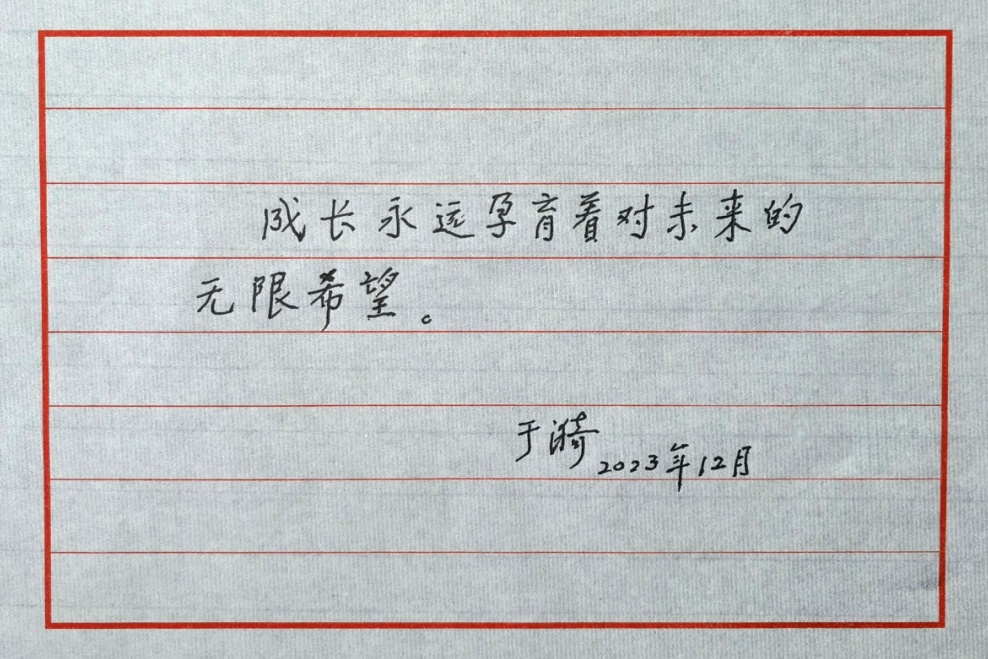 成长永远孕育着对未来的
无限希望。
于漪
2023年12月